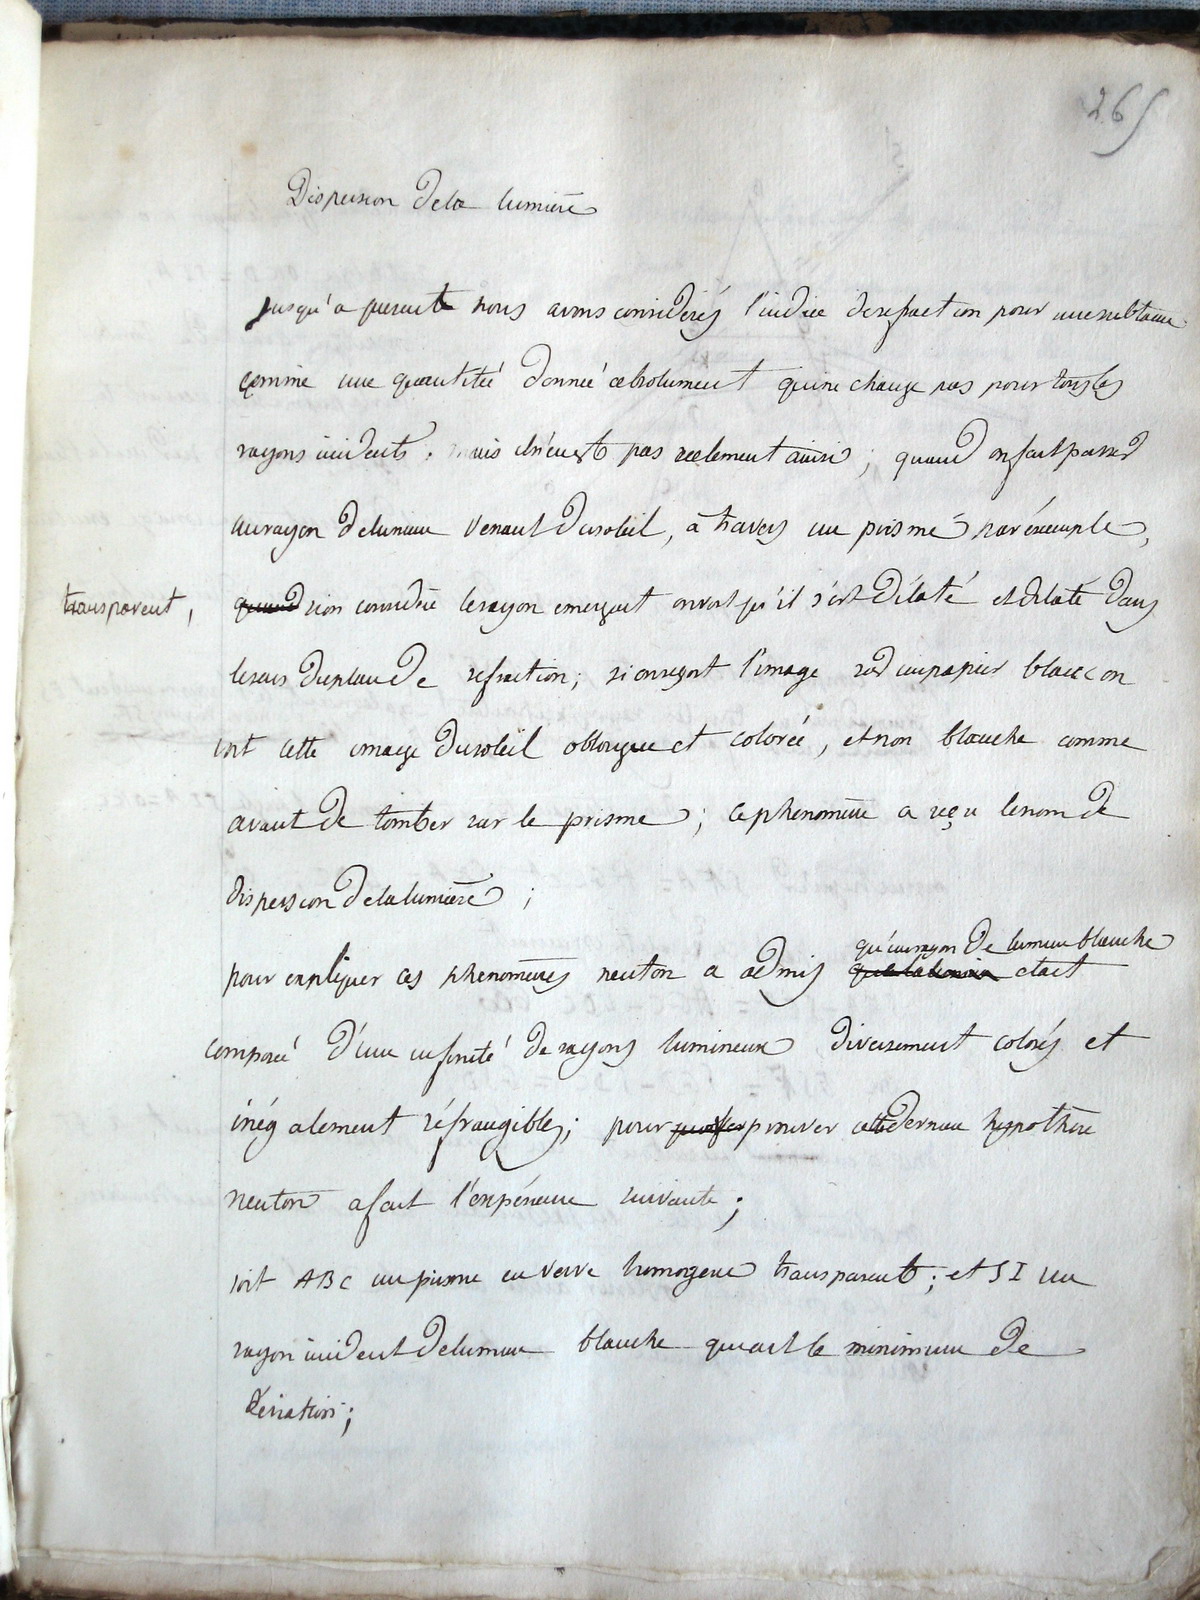 265
Dispersion de la lumière
Jusqu'à present nous avons considérés l'indice de refraction pour une substance
comme une quantité donneé absolument qui ne change pas pour tous les
rayons incidents, mais il n'en est pas réelement ainsi ; quand on fait passer
un rayon de lumiere venant du soleil, à travers un prisme par éxemple,
transparent, quand si on considère le rayon emergent on voit qu'il s'est dilaté et dilaté dans
le sens du plan de refraction ; si on reçoit l'image sur un papier blanc on
voit cette image du soleil oblongue et colorée, et non blanche comme
avant de tomber sur le prisme ; ce phenomène a reçu le nom de
dispersion de la lumière ;
qu'un rayon de lumiere blanche
pour expliquer ces phenomènes neuton a admis etait
composé d'une infinité de rayons lumineux diversement colorés et
inégalement réfrangibles ; pour prouver cette derniere hypothèse
neuton a fait l'expérience suivante ;
soit ABC un prisme en verre homogene transparent ; et SI un
rayon incident de lumiere blanche qui ait le minimum de
déviation ;